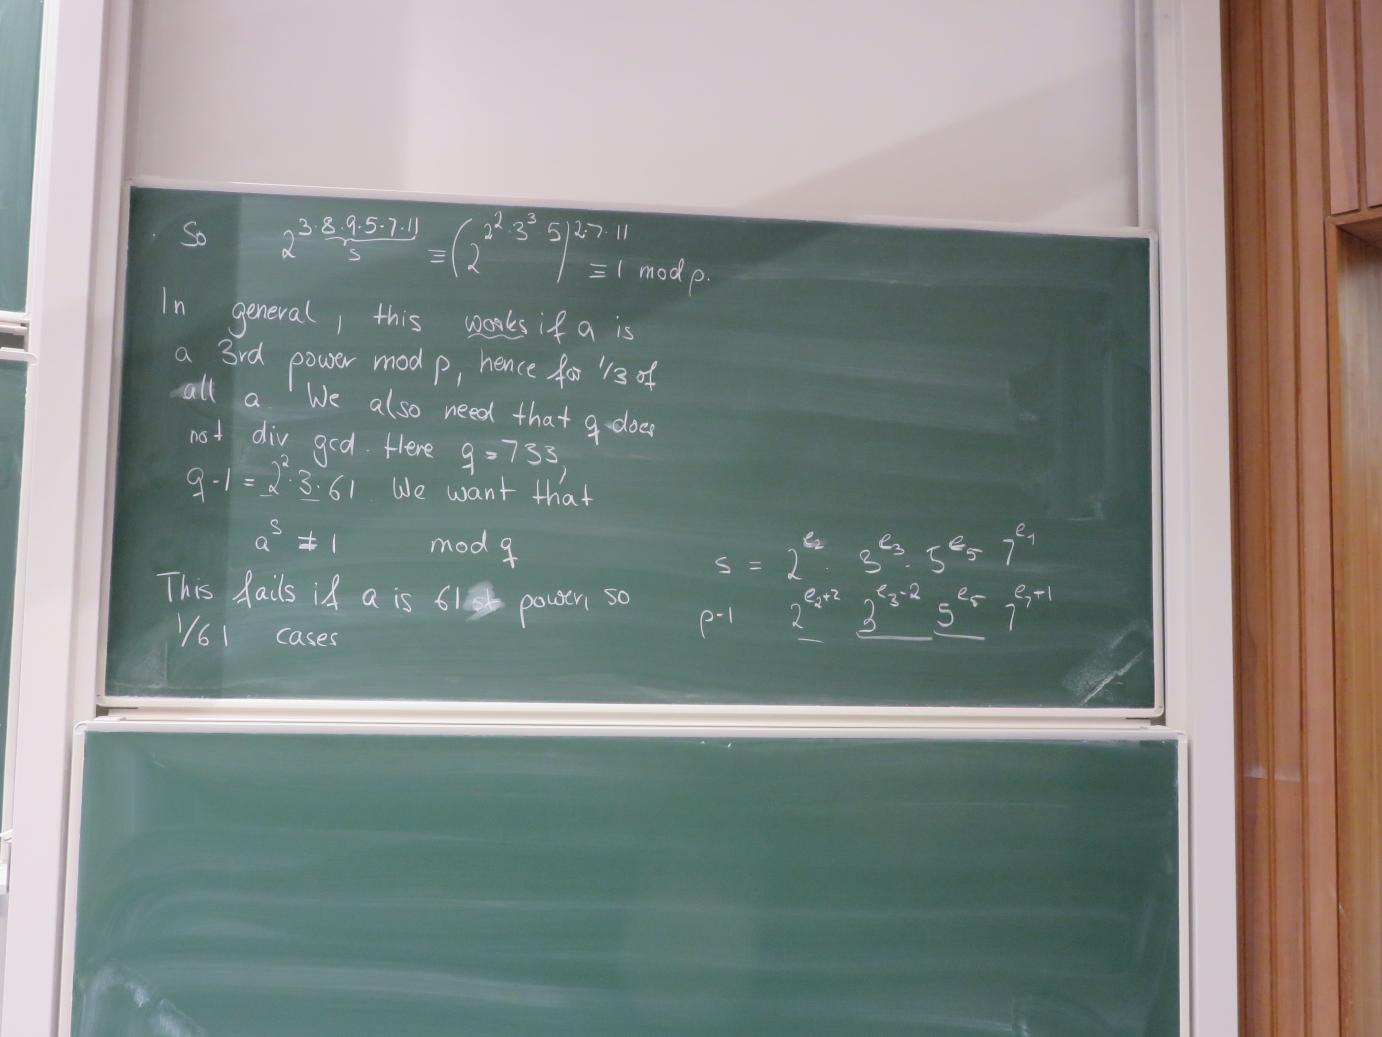 So 2^{3·8·9·5·7·11} ≡ (2^{2²·3³·5})^{2·7·11} ≡ 1 mod p.
s
In general, this works if a is
a 3rd power mod p, hence for 1/3 of
all a. We also need that q does
not div gcd. Here q = 733,
q-1 = 2²·3·61. We want that
a^s ≢ 1 mod q
This fails if a is 61st power, so
1/61 cases
s = 2^{e₂} · 3^{e₃} · 5^{e₅} 7^{e₇}
p-1 2^{e₂+2} 3^{e₃-2} 5^{e₅} 7^{e₇+1}